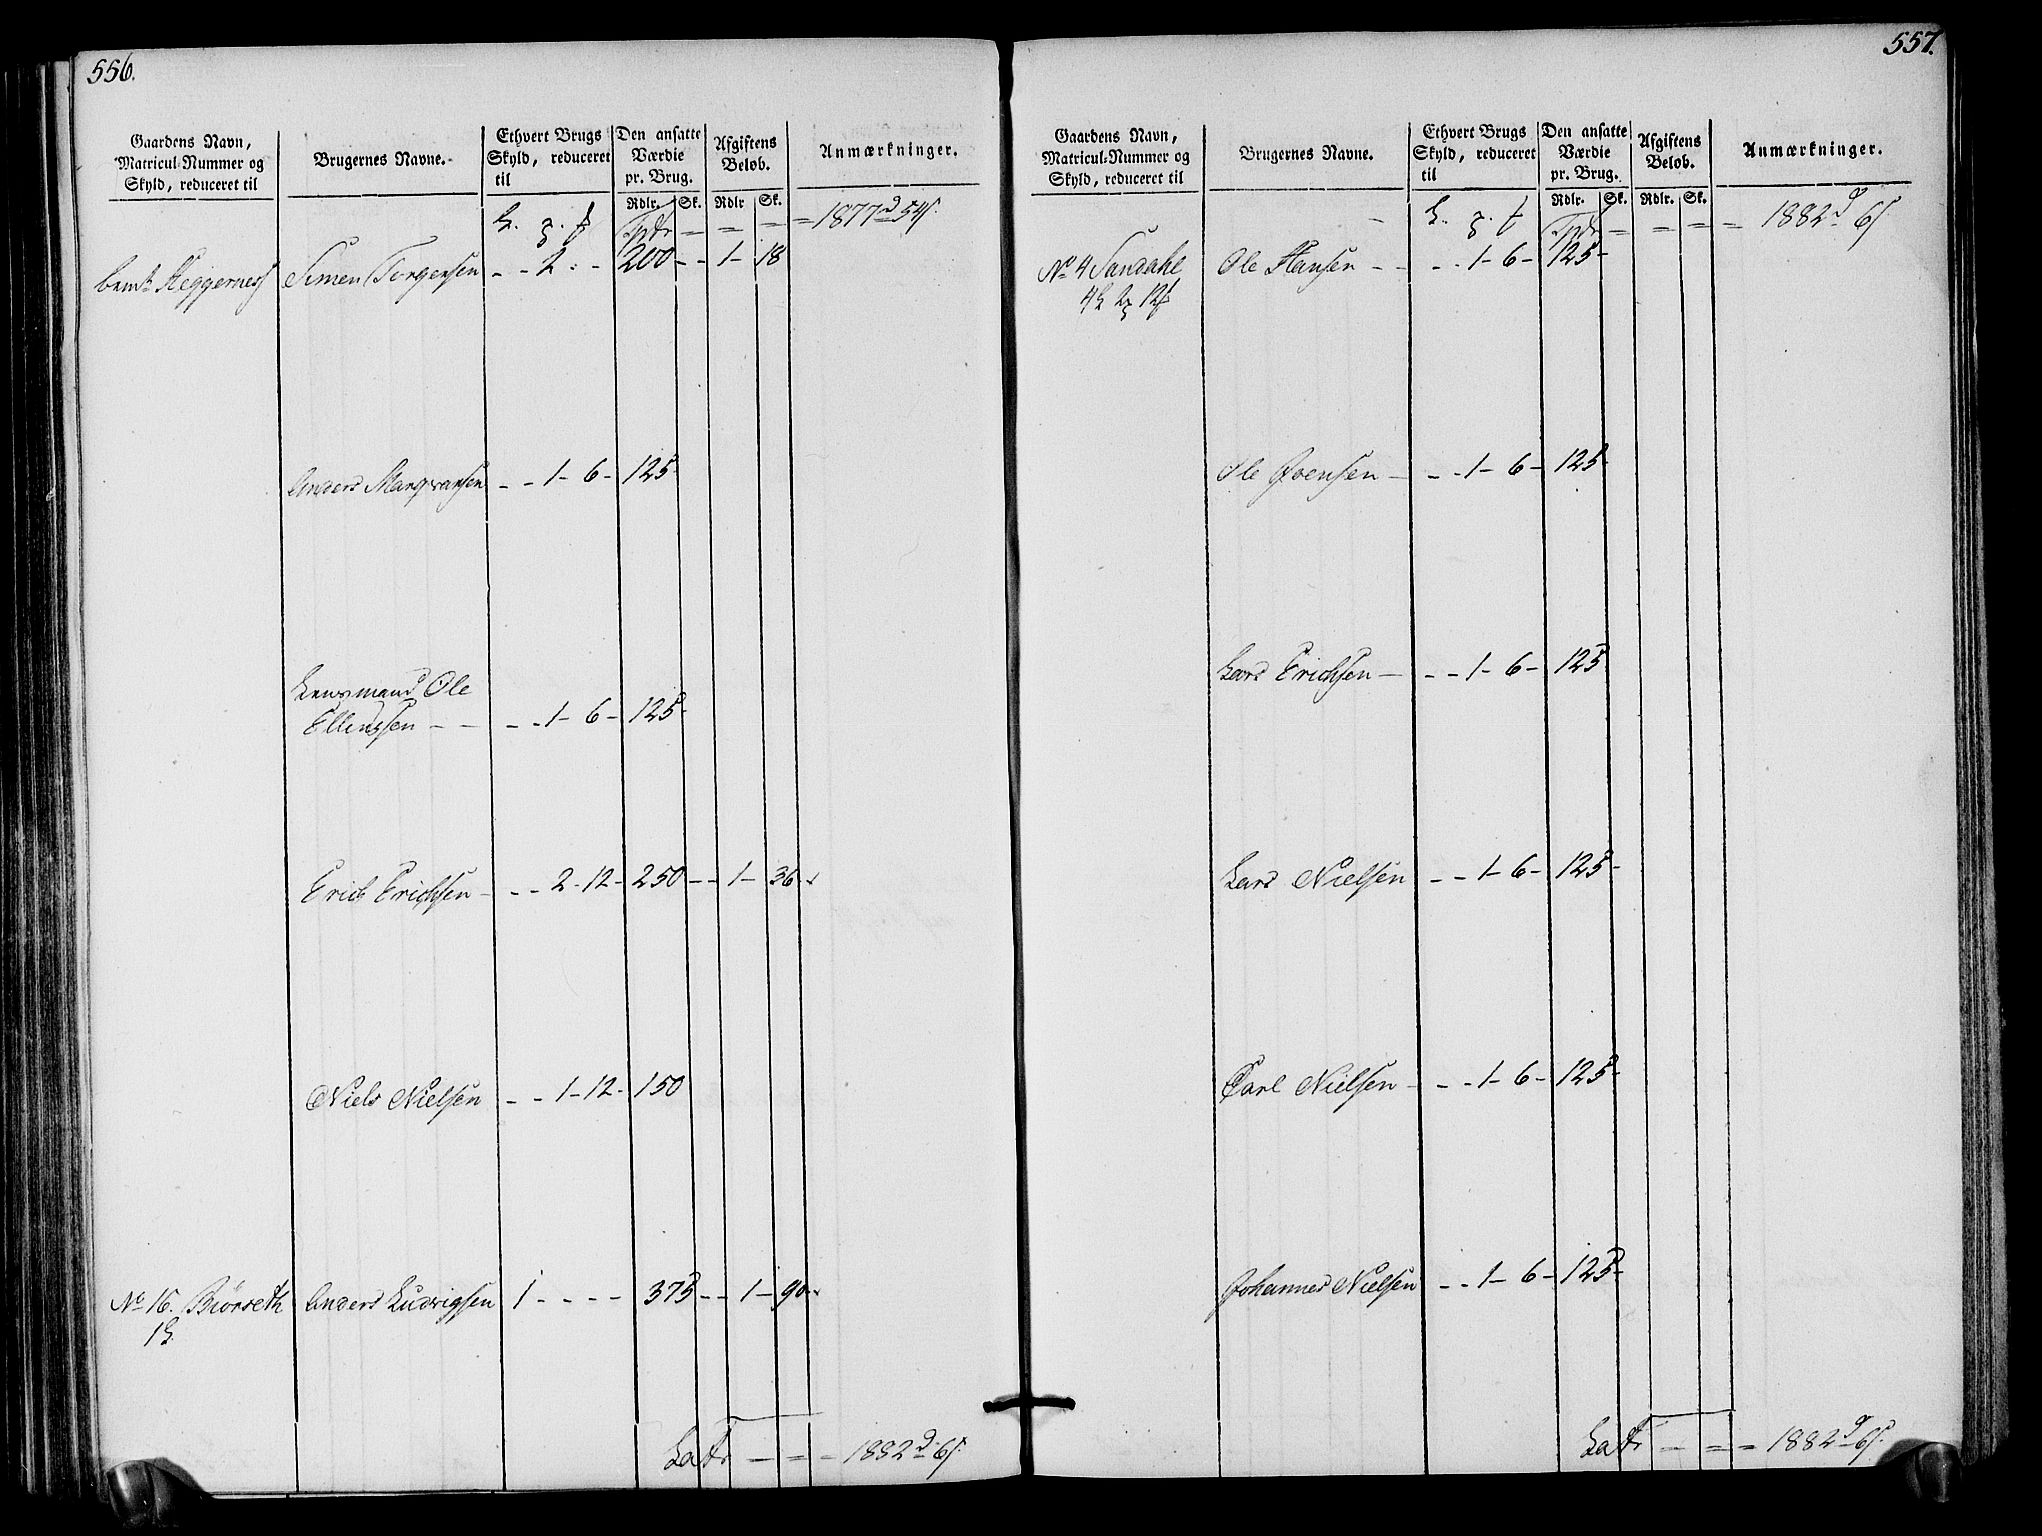 556.
Gaardens Navn,
Matricul-Nummer og
Skyld, reduceret til
Brugernes Navne.
Ethvert Brugs
Skyld, reduceret
til
Den ansatte
Værdie
pr. Brug.
Afgiftens
Beløb.
Anmærkninger.
Rdlr. Sk. Rdlr Sk.
= = = = 1877 54
Heggernes Simen Torgersen - - 2 - - 200 - - 1 - 18
Anders - - 1 - 6 - 125 -
Lensmand Ole
Ellingsen - - - - 1 - 6 - 125 -
Erich Erichsen - - - 2 - 12 - 250 - - 1 - 36
Niels Nielsen - - 1 - 12 - 150
No 16. Biørseth Anders Ludvigsen 1 - - - - 375 - - 1 - 90
1
Latr - = - 1882 6
557.
Gaardens Navn,
Matricul-Nummer og
Skyld, reduceret til
Brugernes Navne.
Ethvert Brugs
Skyld, reduceret
til
Den ansatte
Værdie
pr. Brug.
Afgiftens
Beløb.
Anmærkninger.
Rdlr. Sk. Rdlr. Sk.
- = = = = 1882 6
No 4 Sandahl Ole Hansen - - - - 1 - 6 - 125 -
4 2 12
Ole Ivensen - - - 1 - 6 - 125 -
Lars Erichsen - - - 1 - 6 - 125
Lars Nielsen - - 1 - 6 - 125 -
Carl Nielsen - - - 1 - 6 - 125 -
Johannes Nielsen - - 1 - 6 - 125 -
Latr - = = 1882 6